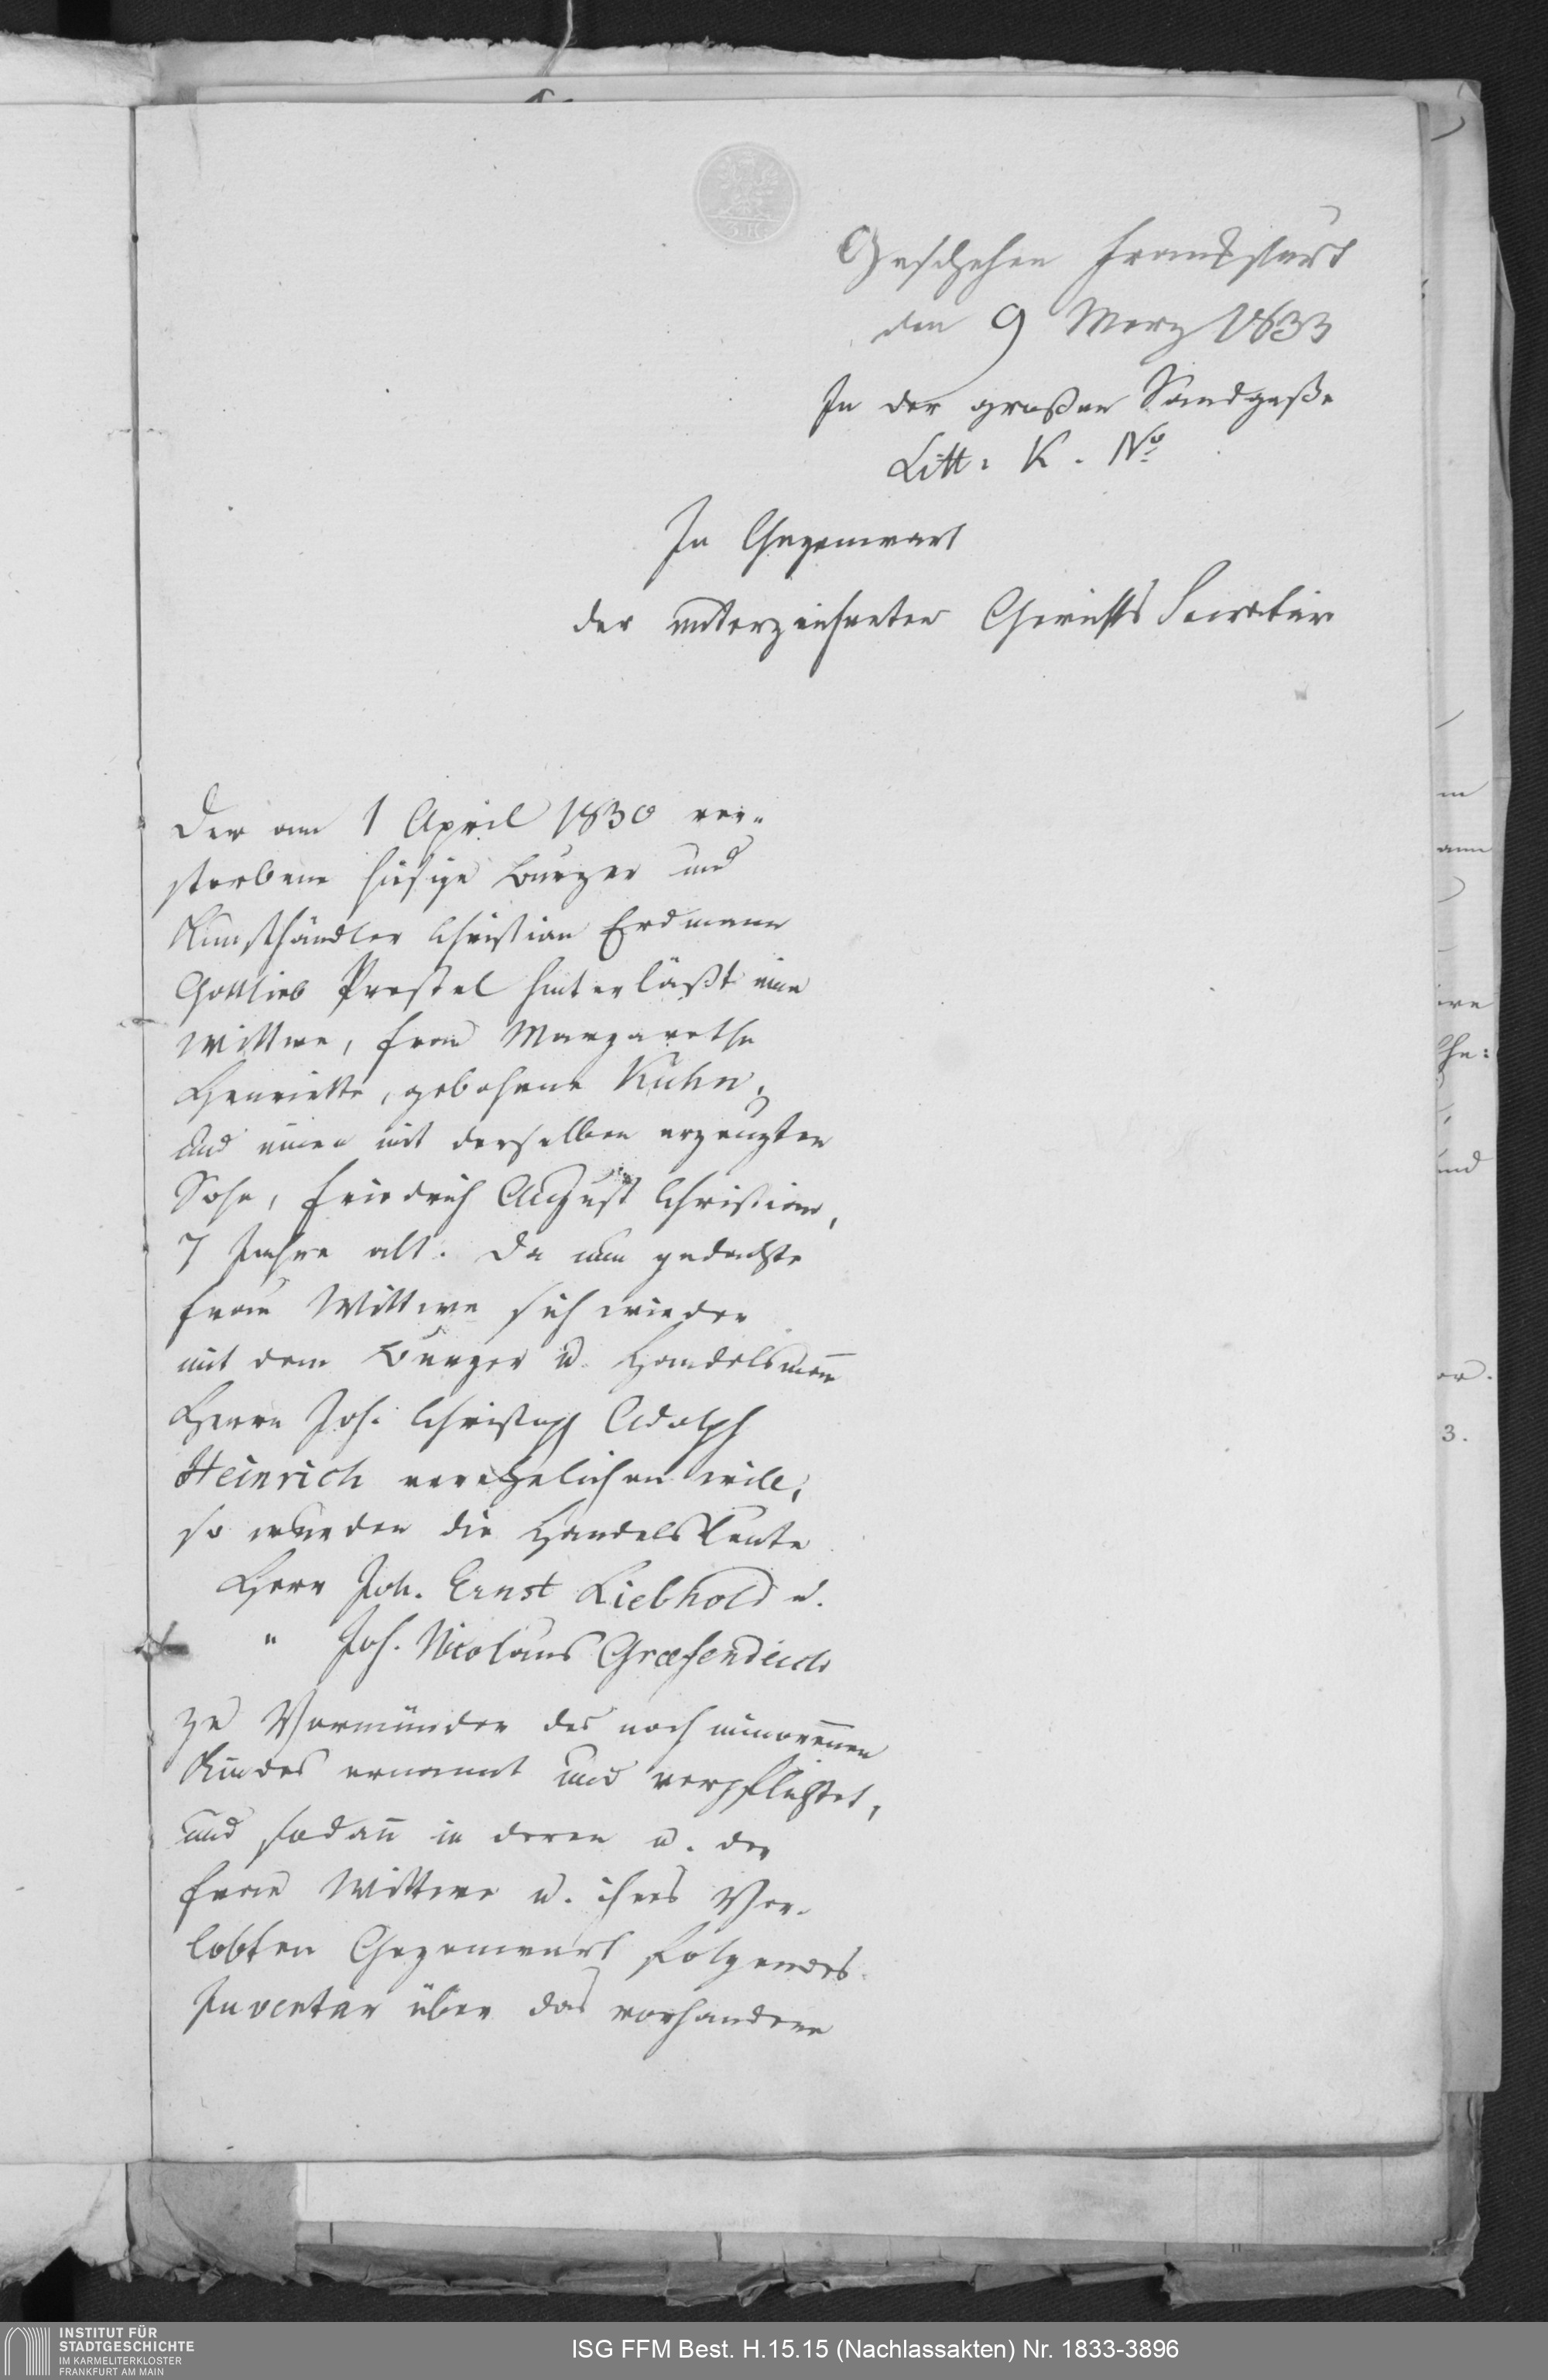 Geschehen Frankfurt
den 9 Merz 1833
In der großen Sandgaße
Litt. K. No
In Gegenwart
der unterzeichneten Gerichts Secretär
Der am 1 April 1830 ver-
storbene hiesige Burger und
Kunsthändler Christian Erdmann
Gottlieb Prestel hinterläßt eine
Wittwe, Frau Margarethe
Henriette, gebohrene Kuhn,
und einen mit derselben erzeugten
Sohn, Friedrich August Christian,
7 Jahre alt. Da nun gedachte
Frau Wittwe sich wieder
mit dem Burger u. Handelsmann
Herrn Joh. Christoph Adolph
Heinrich verehelichen will,
so wurden die Handelsleute
Herr Joh. Ernst Liebhold u.
" Joh. Nicolaus Graefendeich
zu Vormünder des noch minorennen
Kindes ernannt und verpflichtet,
und sodann in deren u. der
Frau Wittwe u. ihres Ver-
lobten Gegenwart folgendes
Inventar über das vorhandene
INSTITUT FÜR
STADTGESCHICHTE
IM KARMELITERKLOSTER
FRANKFURT AM MAIN
ISG FFM Best. H.15.15 (Nachlassakten) Nr. 1833-3896